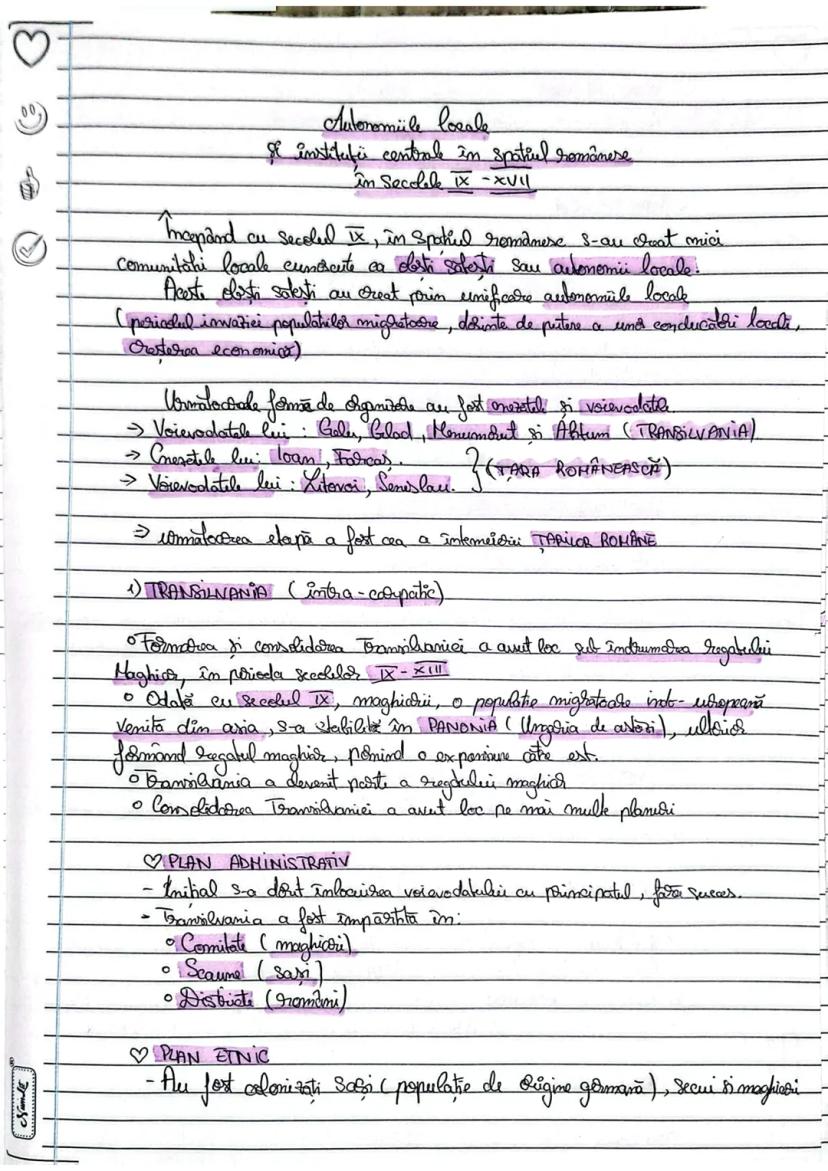 Autonomiile locale
și instituții centrale în spațiul românesc
în secolele IX - XVII
Începând cu secolul IX, în spațiul românesc s-au creat mici
comunități locale cunoscute ca obști sătești sau autonomii locale.
Aceste obști sătești au creat prin unificare autonomiile locale
(pericolul invaziei populațiilor migratoare, dorința de putere a unor conducători locali,
creșterea economică)
Următoarele forme de organizare au fost cnezatele și voievodatele
→ Voievodatele lui : Gelu, Glad, Menumorut și Ahtum (TRANSILVANIA)
→ Cnezatele lui: Ioan, Farcaș.
} (ȚARA ROMÂNEASCĂ)
→ Voievodatele lui : Litovoi, Seneslau.
⇒ următoarea etapă a fost cea a întemeierii ȚĂRILOR ROMÂNE
1) TRANSILVANIA (intra-carpatic)
° Formarea și consolidarea Transilvaniei a avut loc sub îndrumarea regatului
Maghiar, în perioda secolelor IX - XIII
° Odată cu secolul IX, maghiarii, o populație migratoare indo-europeană
venită din asia, s-a stabilit în PANONIA (Ungaria de astăzi), ulterior
formând regatul maghiar, pornind o expansiune către est.
° Transilvania a devenit parte a regatului maghiar
° Consolidarea Transilvaniei a avut loc pe mai multe planuri
♡ PLAN ADMINISTRATIV
- Inițial s-a dorit înlocuirea voievodatului cu principatul, fără succes.
- Transilvania a fost împărțită în:
° Comitate (maghiari)
° Scaune (sași)
° Districte (români)
♡ PLAN ETNIC
- Au fost colonizați Sași (populație de origine germană), secui și maghiari